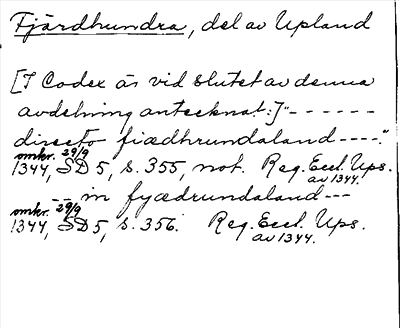 Fjärdhundra, del av Upland
[I Codex är vid slutet av denna
avdelning antecknat:]"- - - - - - -
directo fiædhrundaland - - - -."
omkr. 29/9
1344, SD 5, s. 355, not. Reg. Eccl. Ups.
av 1344.
- - in fyædrundaland - - -
omkr. 29/9
1344, SD 5, s. 356. Reg. Eccl. Ups.
av 1344.